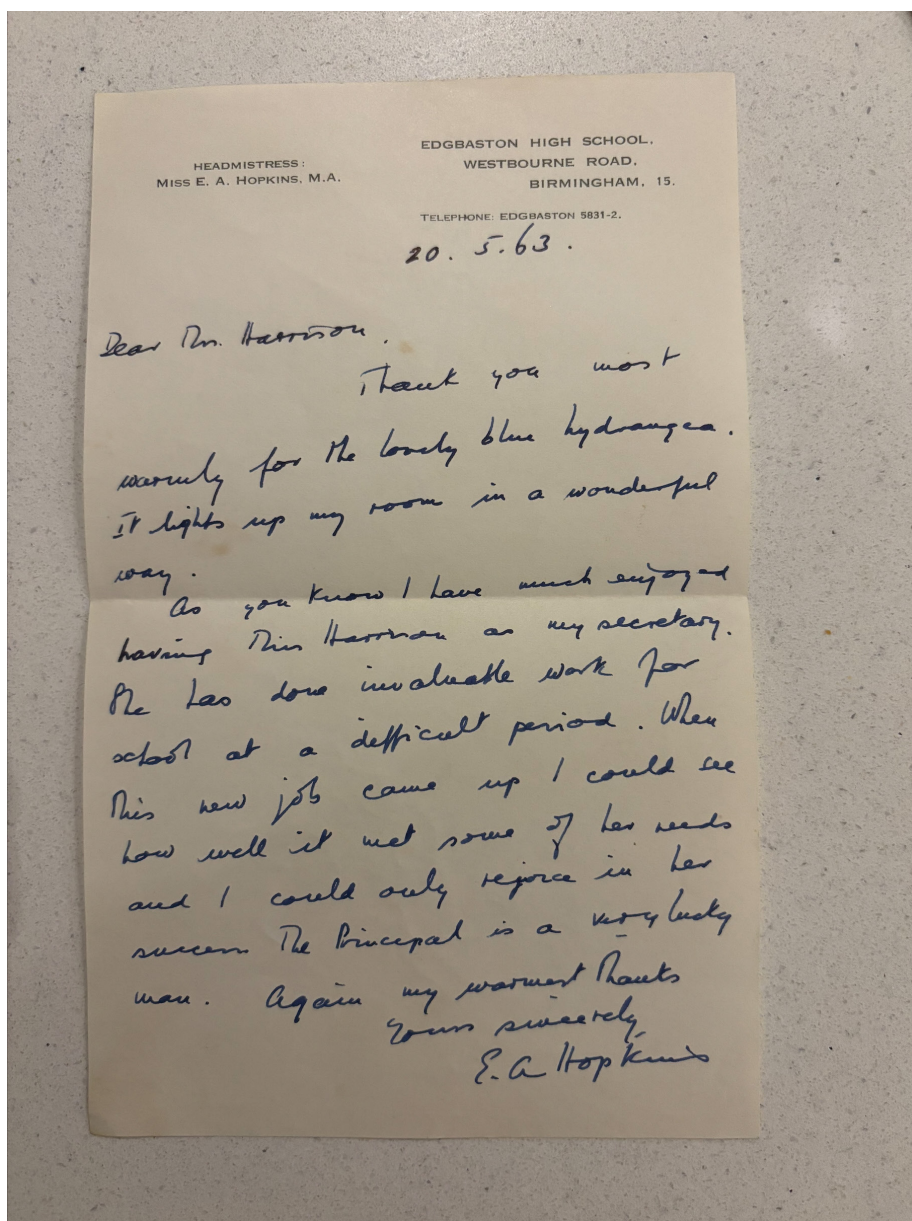 HEADMISTRESS:
MISS E. A. HOPKINS, M.A.
EDGBASTON HIGH SCHOOL,
WESTBOURNE ROAD,
BIRMINGHAM, 15.
TELEPHONE: EDGBASTON 5831-2.
20. 5. 63.
Dear Mrs. Harrison,
Thank you most
warmly for the lovely blue hydrangea.
It lights up my room in a wonderful
way.
As you know I have much enjoyed
having Miss Harrison as my secretary.
She has done invaluable work for
school at a difficult period. When
this new job came up I could see
how well it met some of her needs
and I could only rejoice in her
success. The Principal is a very lucky
man. Again my warmest thanks
Yours sincerely
E. A Hopkins